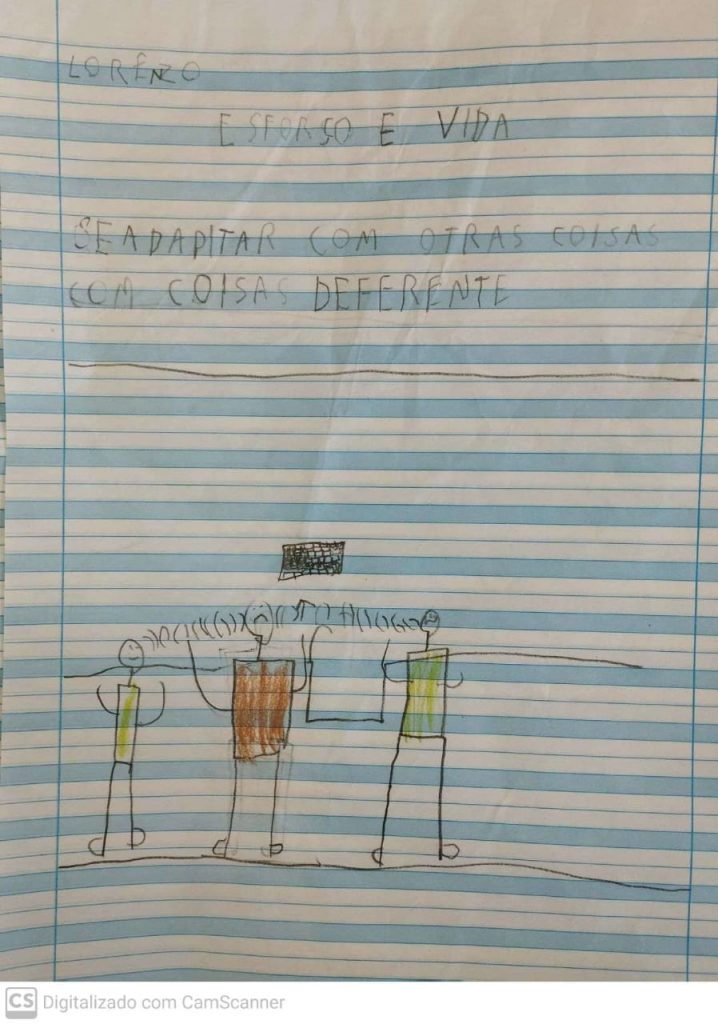 LORENZO
ESFORÇO E VIDA
SEADAPITAR COM OTRAS COISAS
COM COISAS DEFERENTE
CS Digitalizado com CamScanner